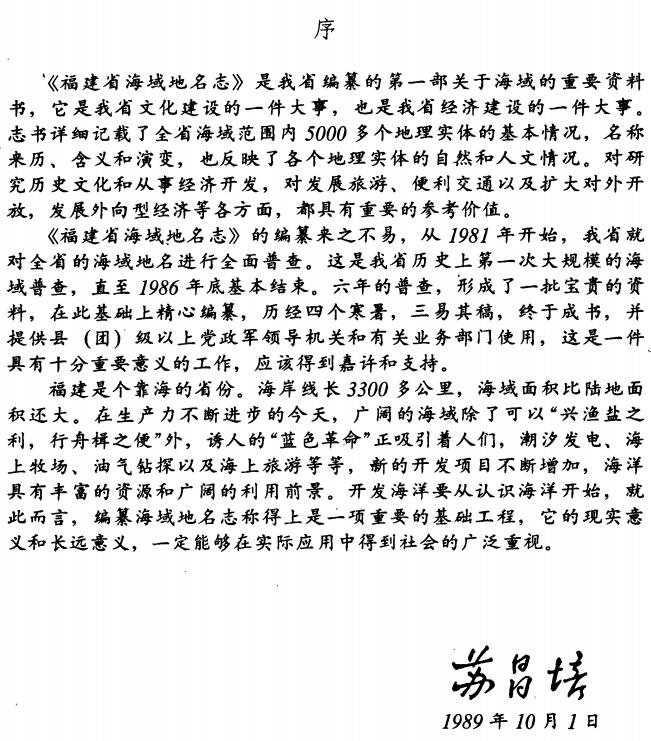 序
《福建省海域地名志》是我省编纂的第一部关于海域的重要资料
书，它是我省文化建设的一件大事，也是我省经济建设的一件大事。
志书详细记载了全省海域范围内5000多个地理实体的基本情况，名称
来历、含义和演变，也反映了各个地理实体的自然和人文情况。对研
究历史文化和从事经济开发，对发展旅游、便利交通以及扩大对外开
放，发展外向型经济等各方面，都具有重要的参考价值。
《福建省海域地名志》的编纂来之不易，从1981年开始，我省就
对全省的海域地名进行全面普查。这是我省历史上第一次大规模的海
域普查，直至1986年底基本结束。六年的普查，形成了一批宝贵的资
料，在此基础上精心编纂，历经四个寒署，三易其稿，终于成书，并
提供县（团）级以上党政军领导机关和有关业务部门使用，这是一件
具有十分重要意义的工作，应该得到嘉许和支持。
福建是个靠海的省份。海岸线长3300多公里，海域面积比陆地面
积还大。在生产力不断进步的今天，广阔的海域除了可以“兴渔盐之
利，行舟楫之便”外，诱人的“蓝色革命”正吸引着人们，潮汐发电、海
上牧场、油气钻探以及海上旅游等等，新的开发项目不断增加，海洋
具有丰富的资源和广阔的利用前景。开发海洋要从认识海洋开始，就
此而言，编纂海域地名志称得上是一项重要的基础工程，它的现实意
义和长远意义，一定能够在实际应用中得到社会的广泛重视。
苏昌培
1989年10月1日